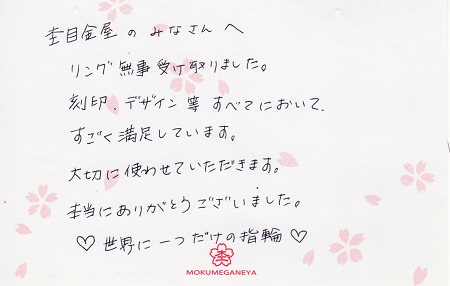 杢目金屋のみなさんへ
リング無事受け取りました。
刻印、デザイン等すべてにおいて、
すごく満足しています。
大切に使わせていただきます。
本当にありがとうございました。
♡世界に一つだけの指輪♡
杢
MOKUMEGANEYA